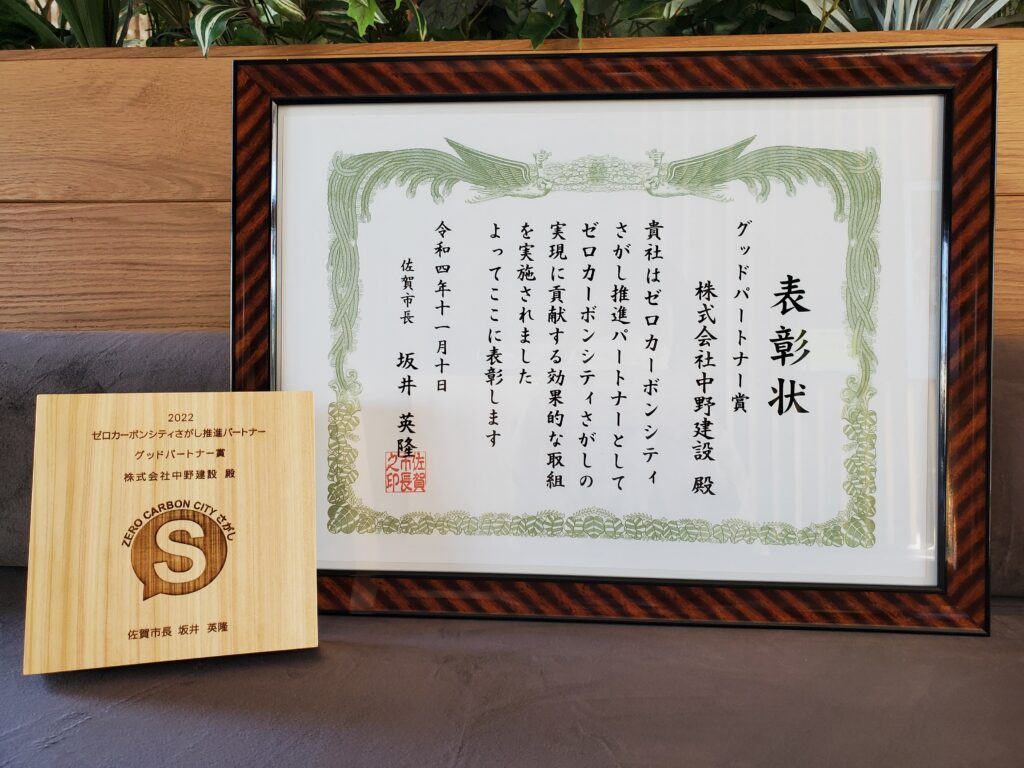 表彰状
グッドパートナー賞
株式会社中野建設 殿
貴社はゼロカーボンシティ
さがし推進パートナーとして
ゼロカーボンシティさがしの
実現に貢献する効果的な取組
を実施されました
よってここに表彰します
令和四年十一月十日
佐賀市長 坂井 英隆
佐賀
市長
之印
2022
ゼロカーボンシティさがし推進パートナー
グッドパートナー賞
株式会社中野建設 殿
ZERO CARBON CITY さがし
S
佐賀市長 坂井 英隆